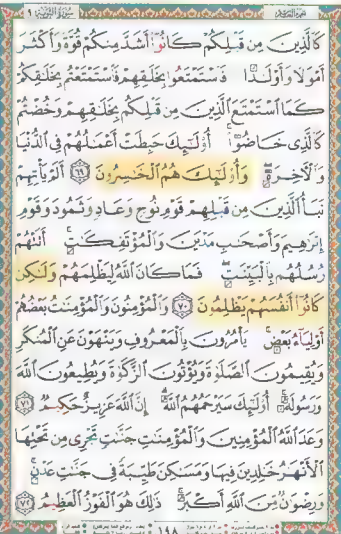 سورة التوبة ٩
كَٱلَّذِينَ مِن قَبْلِكُمْ كَانُوٓا۟ أَشَدَّ مِنكُمْ قُوَّةً وَأَكْثَرَ
أَمْوَٰلًا وَأَوْلَٰدًا فَٱسْتَمْتَعُوا۟ بِخَلَٰقِهِمْ فَٱسْتَمْتَعْتُم بِخَلَٰقِكُمْ
كَمَا ٱسْتَمْتَعَ ٱلَّذِينَ مِن قَبْلِكُم بِخَلَٰقِهِمْ وَخُضْتُمْ
كَٱلَّذِى خَاضُوٓا۟ أُو۟لَٰٓئِكَ حَبِطَتْ أَعْمَٰلُهُمْ فِى ٱلدُّنْيَا
وَٱلْءَاخِرَةِ وَأُو۟لَٰٓئِكَ هُمُ ٱلْخَٰسِرُونَ ٦٩ أَلَمْ يَأْتِهِمْ
نَبَأُ ٱلَّذِينَ مِن قَبْلِهِمْ قَوْمِ نُوحٍ وَعَادٍ وَثَمُودَ وَقَوْمِ
إِبْرَٰهِيمَ وَأَصْحَٰبِ مَدْيَنَ وَٱلْمُؤْتَفِكَٰتِ أَتَتْهُمْ
رُسُلُهُم بِٱلْبَيِّنَٰتِ فَمَا كَانَ ٱللَّهُ لِيَظْلِمَهُمْ وَلَٰكِن
كَانُوٓا۟ أَنفُسَهُمْ يَظْلِمُونَ ٧٠ وَٱلْمُؤْمِنُونَ وَٱلْمُؤْمِنَٰتُ بَعْضُهُمْ
أَوْلِيَآءُ بَعْضٍ يَأْمُرُونَ بِٱلْمَعْرُوفِ وَيَنْهَوْنَ عَنِ ٱلْمُنكَرِ
وَيُقِيمُونَ ٱلصَّلَوٰةَ وَيُؤْتُونَ ٱلزَّكَوٰةَ وَيُطِيعُونَ ٱللَّهَ
وَرَسُولَهُۥٓ أُو۟لَٰٓئِكَ سَيَرْحَمُهُمُ ٱللَّهُ إِنَّ ٱللَّهَ عَزِيزٌ حَكِيمٌ ٧١
وَعَدَ ٱللَّهُ ٱلْمُؤْمِنِينَ وَٱلْمُؤْمِنَٰتِ جَنَّٰتٍ تَجْرِى مِن تَحْتِهَا
ٱلْأَنْهَٰرُ خَٰلِدِينَ فِيهَا وَمَسَٰكِنَ طَيِّبَةً فِى جَنَّٰتِ عَدْنٍ
وَرِضْوَٰنٌ مِّنَ ٱللَّهِ أَكْبَرُ ذَٰلِكَ هُوَ ٱلْفَوْزُ ٱلْعَظِيمُ ٧٢
١٩٨